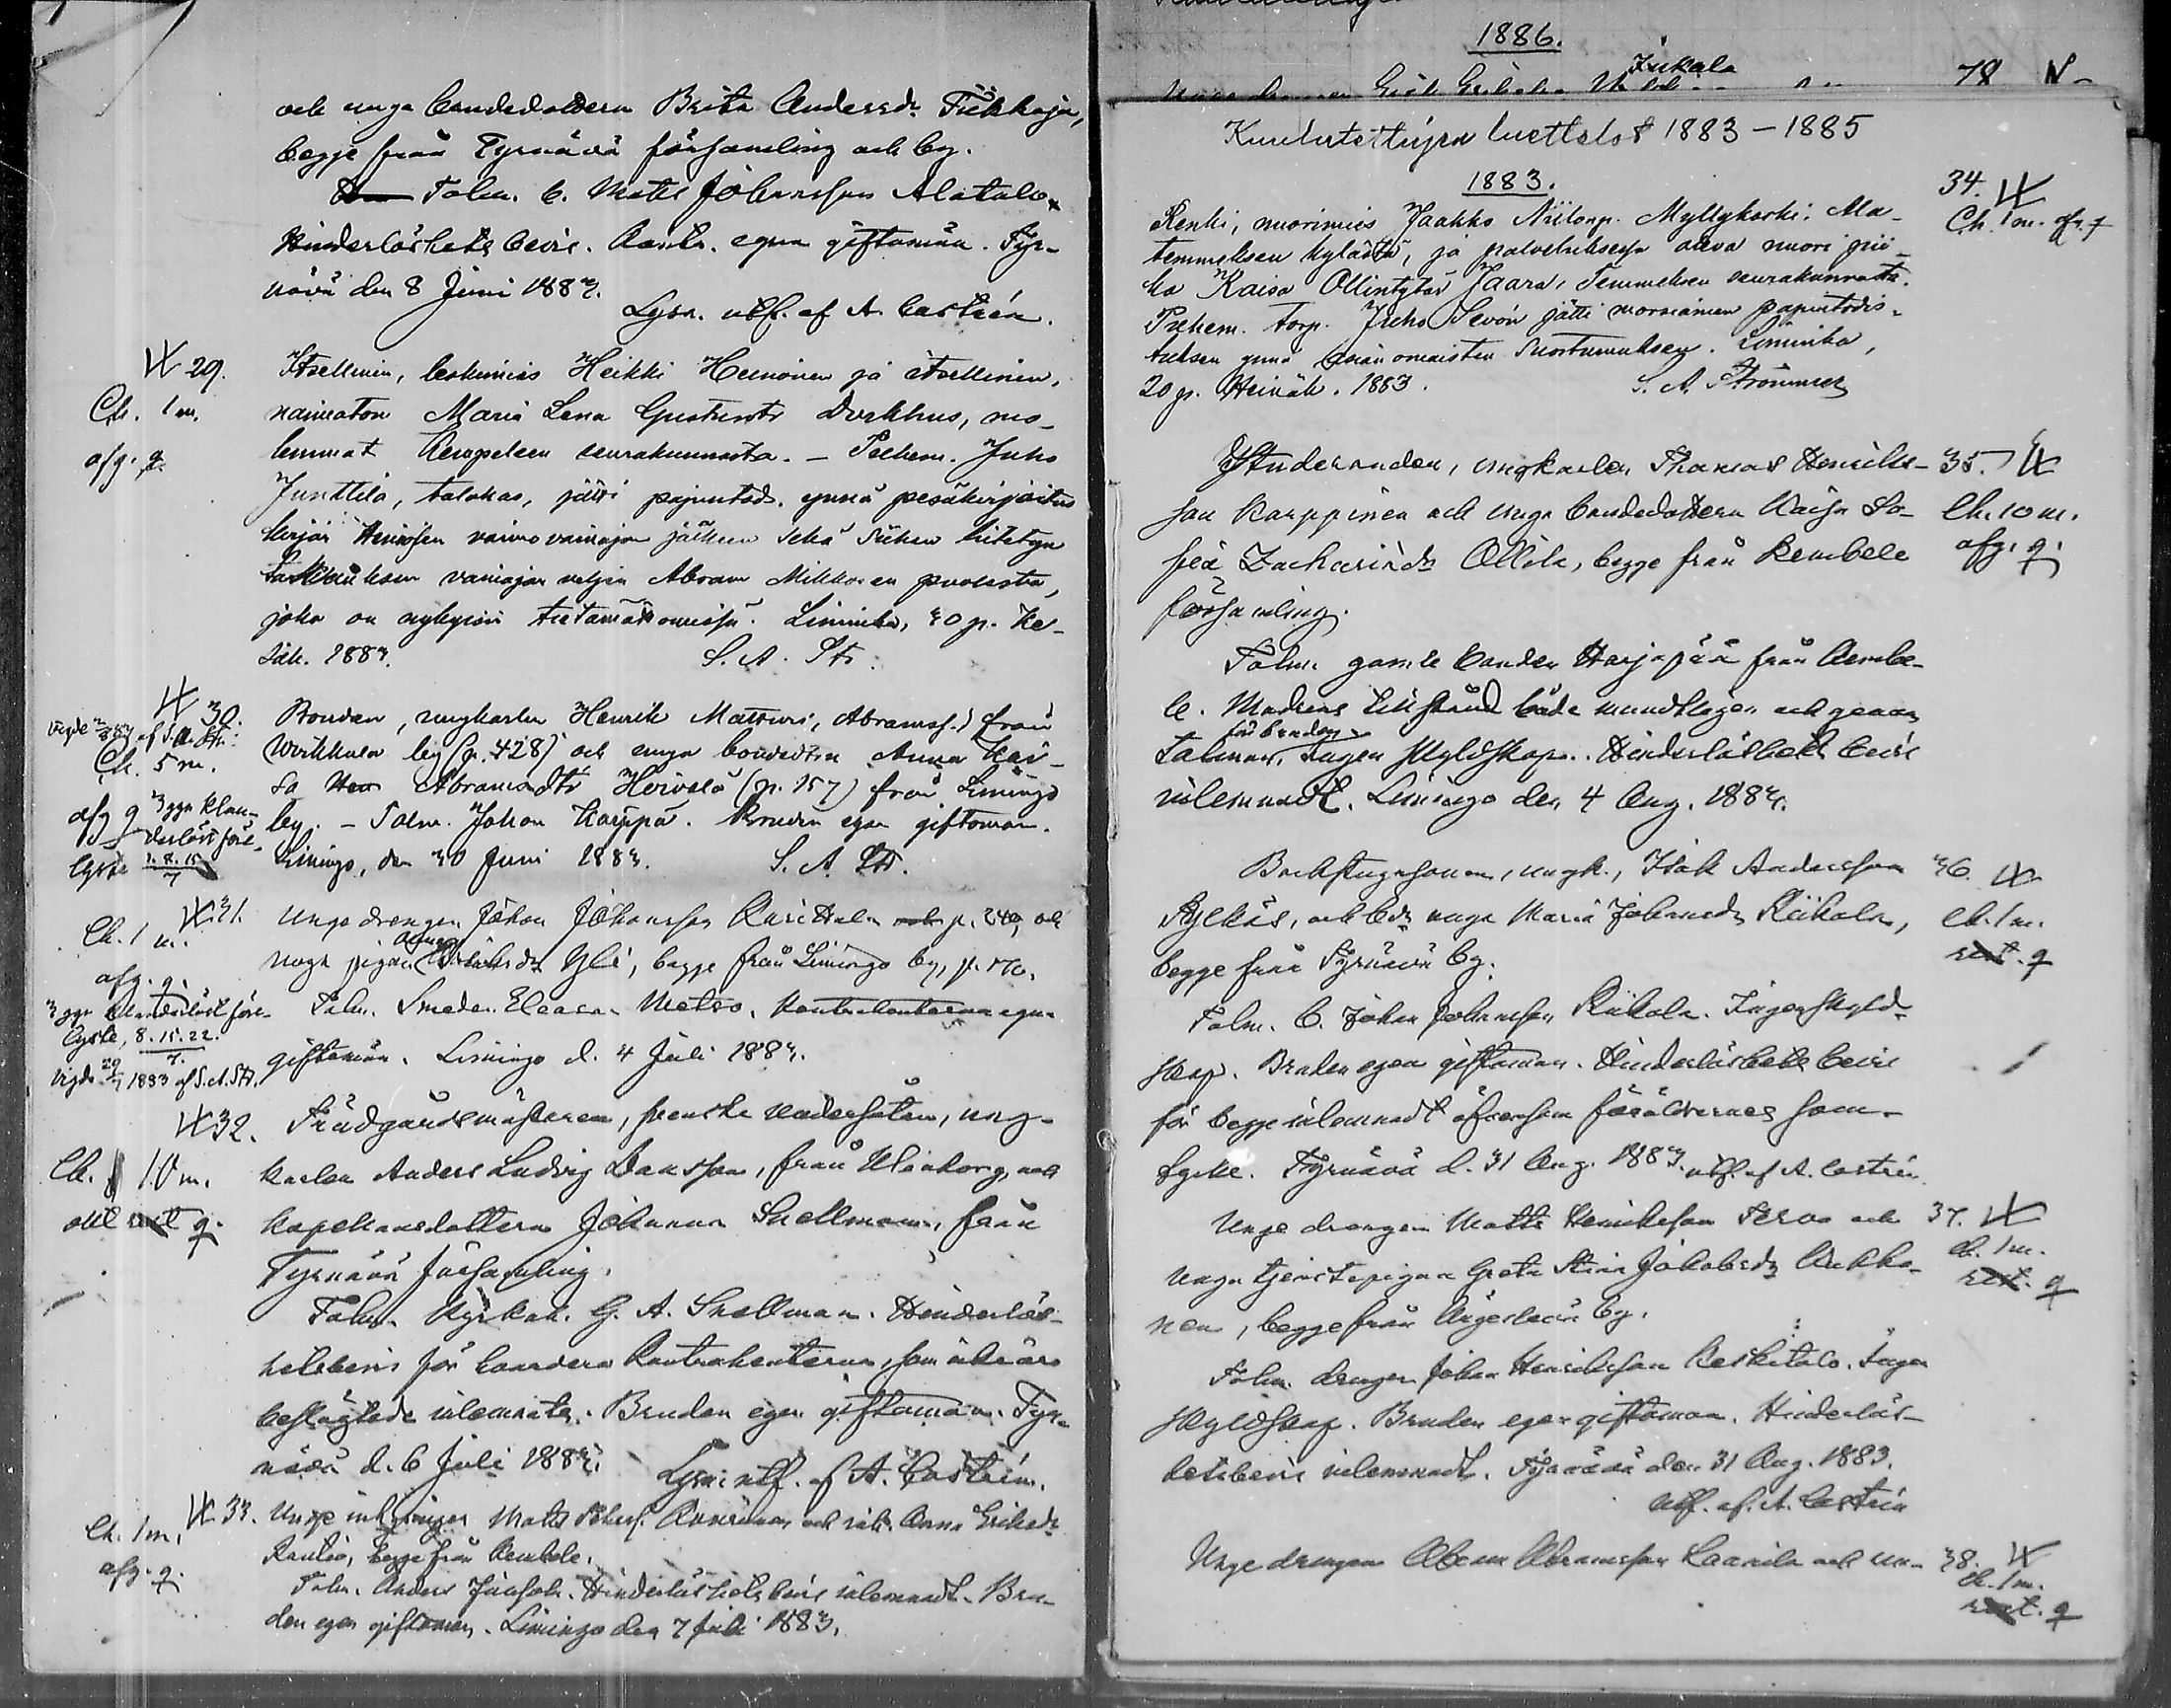 och unga bondedottern Brita Andersdr Tikkaja,
begge från Tyrnävä församling och by.
Talm. b. Matts Johansson Alatalo
Hinderlöshets bevis. Kontr. egna giftomän. Tyr-
nävä den 8 Juni 1883.
Lysn. utf. af A. Castrén.
29.
Ch. 1 m.
afg. q.
Itsellinen, leskimies Heikki Heinonen ja itsellinen,
naimaton Maria Lena Gustintr Dorkhus, mo-
lemmat Kempeleen seurakunnasta. – Puhem. Juho
Junttila, talokas, jätti papintod. ynnä pesäkirjoitus
kirjan Heinosen vaimovainajan jälkeen sekä siihen liitetyn
vainajan veljen Abram Mikkosen puolesta,
joka on nykyisin tietämättömissä. Liminka, 30 p. Ke-
säk. 1883.
S. A. Str.
30.
Vigde af S. A. Str.
Ch. 5 m.
afg q 3 ggr klan-
derlöst före-
lyste 1. 8. 15
7
Bonden, ungkarlen Henrik Mattsson, Abramsf.) från
Wirkkula by (p. 428) och unga bondedtrn Anna Kai-
sa Abramsdtr Heivala (p. 157) från Limingo
by. – Talm. Johan Karppa. Bruden egen giftoman.
Limingo, den 30 Juni 1883.
S. A. Str.
31.
Ch. 1 m.
afg. q.
3 ggr klanderlöst före-
lyste, 8. 15. 22.
7.
Vigde 29/7 1883 af S. A. Str.
Unge drengen Johan Johansson p. 240, och
unga pigan Yli, begge från Limingo by, p. 170.
Talm. Smeden Eleasar Matso. Kontrahenterna egna
giftomän. Limingo d. 4 Juli 1883.
32.
Ch. 10 m.
q.
Trädgårdsmästaren, svenske undersåten, ung-
karlen Anders Ludvig Dansson, från Uleåborg, och
kapellansdottern Johanna Snellman, från
Tyrnävä församling.
Talm. Kyrkoh. G. A. Snellman. Hinderlös-
hetsbevis för hvardera Kontrahenterna, som icke äro
beslägtade inlemnats. Bruden egen giftoman. Tyr-
nävä d. 6 Juli 1883.
Lysn. utf. af A. Castrén.
33.
Ch. 1 m.
afg. q.
Unge inhysingen Matts och inh. Anna Eriksdr
Rautio, begge från Kembele.
Talm. Anders Hinderlöshetsbevis inlemnadt. Bru-
den egen giftoman. Limingo den 7 Juli 1883.
1886.
Inkala
78
Kuulutettujen luettelot 1883 – 1885
1883.
34.
Ch. 1 m. afg. q
Renki, nuorimies Jaakko Niilonp. Myllykoski, Ala-
temmeksen kylästä, ja palveluksessa oleva nuori pii-
ka Kaisa Ollintytär Jaara, Temmeksen seurakunnasta.
Puhem. torp. Juho Sevón jätti morsiamen papintodis-
tuksen ynnä asian omaisten suostumuksen. Liminka,
20 p. Heinäk. 1883.
S. A. Strömmer
35.
Ch. 10 m.
afg. q.
Studeranden, ungkarlen Thomas Henriks-
son Karppinen och unga bondedottern Kaisa So-
fia Zachariädr Ollila, begge från Kembele
församling.
Talm. gamle bonden Harjapää från Kembe-
le. Modrens tillstånd både mundtligen och genom
för bruden
talman. Ingen skyldskap. Hinderlöshets bevis
inlemnadt. Limingo den 4 Aug. 1883.
36.
Ch. 1 m.
q
Backstugusonen, ungk., Isak Andersson
Sylkäs, och bdr unga Maria Johansdr Riikola,
begge från Tyrnävä by.
Talm. b. Johan Johansson Riikola. Ingen skyld-
skap. Bruden egen giftoman. Hinderlöshets bevis
för begge inlemnadt äfvensom föräldrarnes sam-
tycke. Tyrnävä d. 31 Aug. 1883. utf. af A. Castrén
37.
Ch. 1 m.
q
Unge drengen Matts Henriksson Tervo och
unga tjenstepigan Greta Stina Jakobsdr Aukko-
nen, begge från Ängeslevä by.
Talm. drengen Johan Henriksson Keskitalo. Ingen
skyldskap. Bruden egen giftoman. Hinderlös-
hetsbevis inlemnadt. Tyrnävä den 31 Aug. 1883.
utf. af A. Castrén
38.
Ch. 1 m.
q
Unge drengen Abram Abramsson Laurila och un-